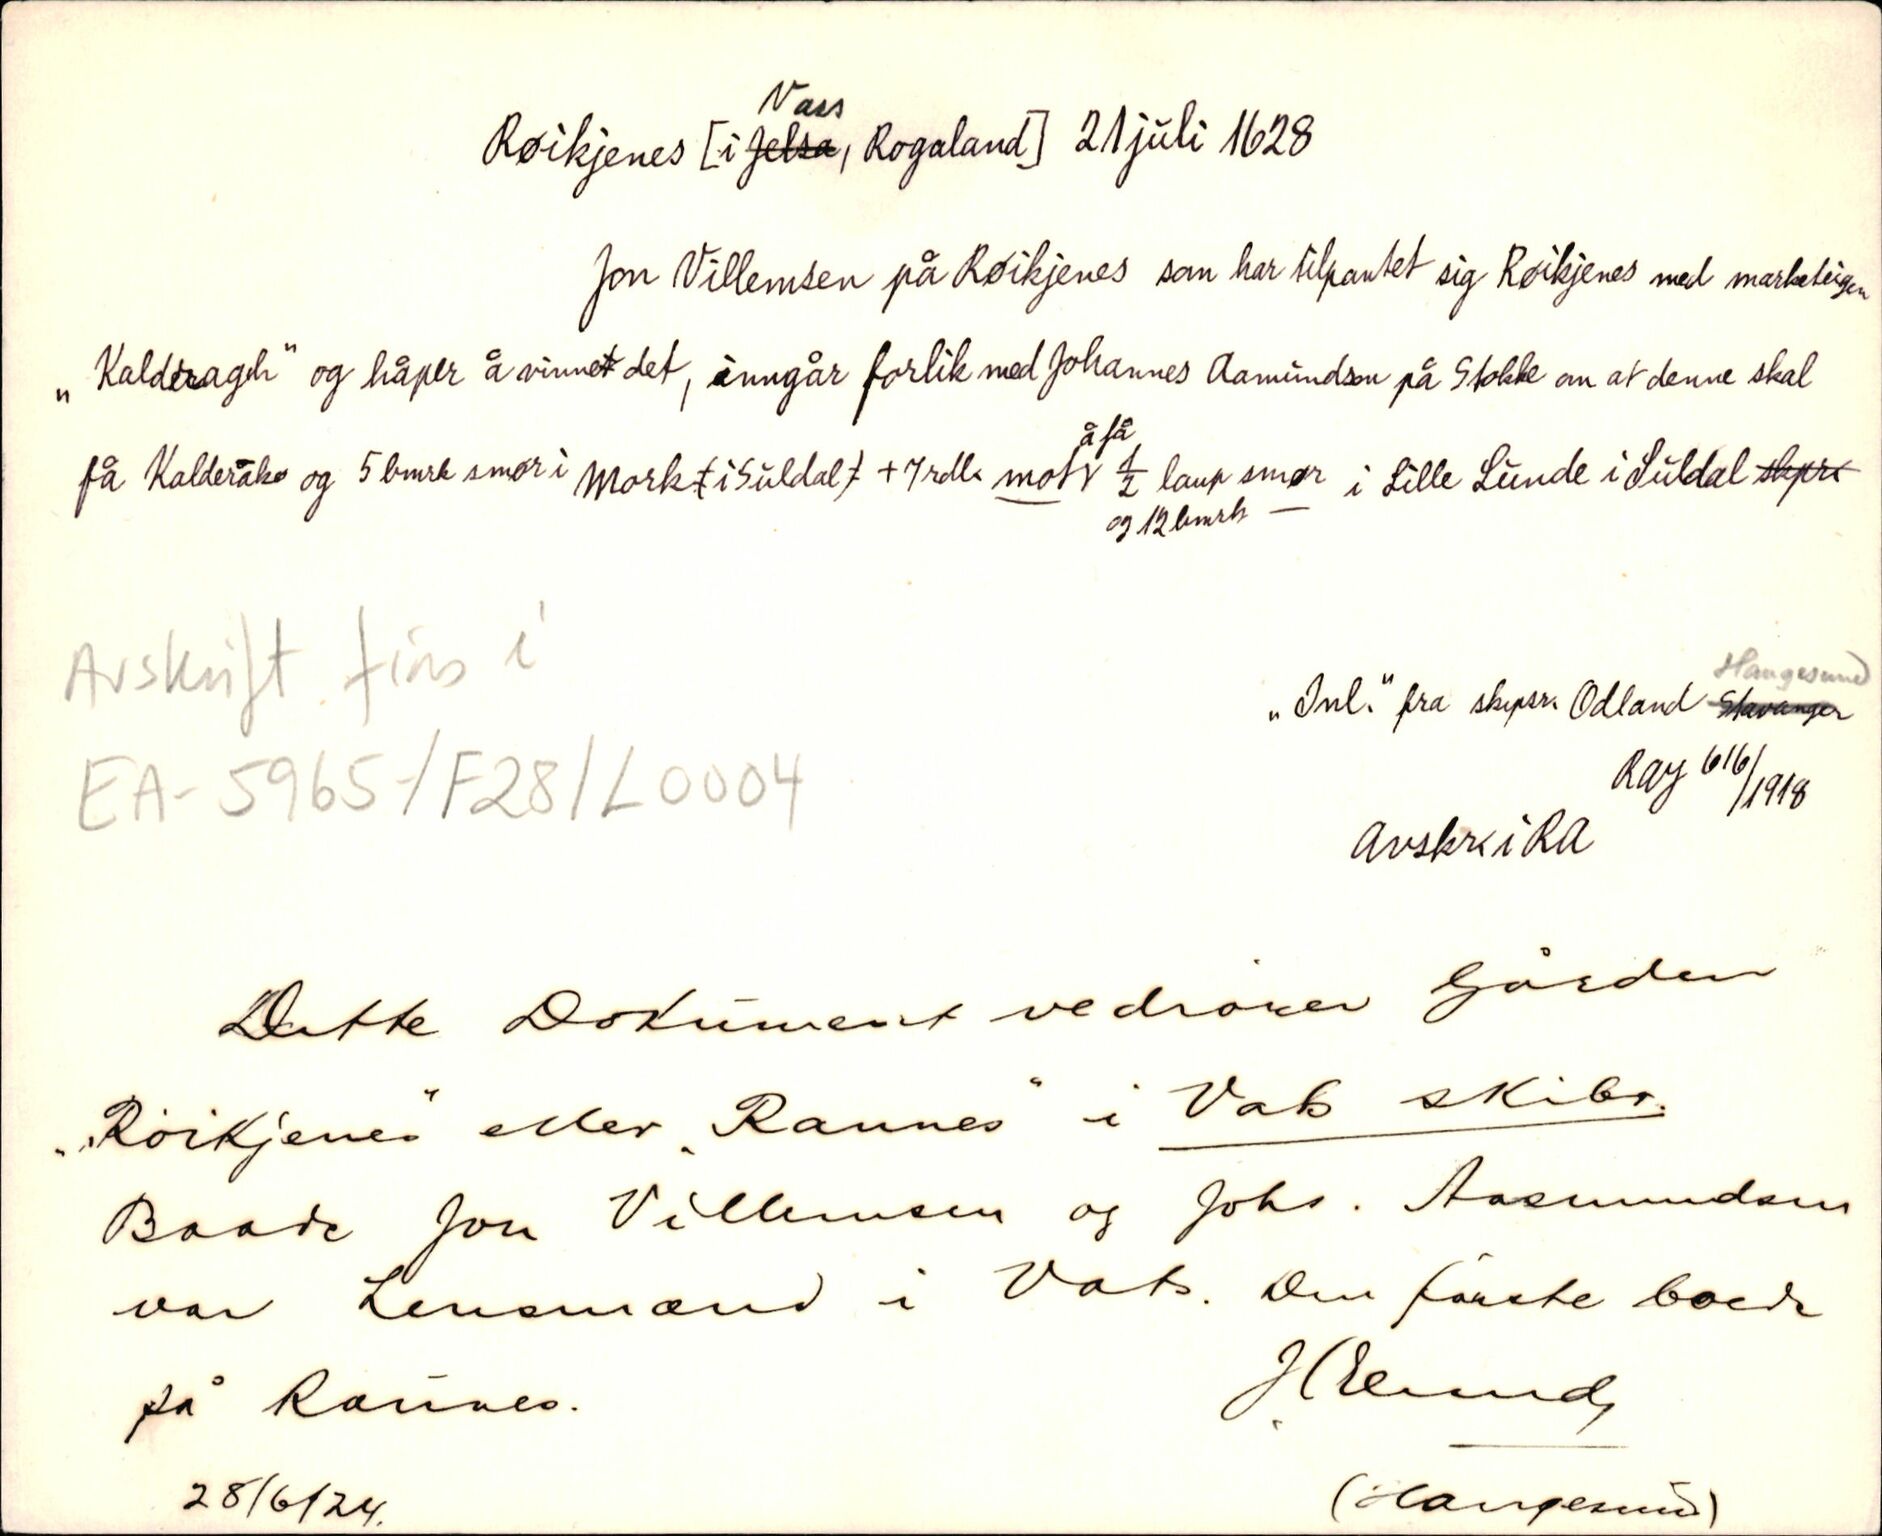 Vass
Røikjenes [i Jelsa, Rogaland] 21 juli 1628
Jon Villemsen på Røikjenes som har tilpantet sig Røikjenes med marketeigen
„Kalderagh" og håper å vinne det, inngår forlik med Johannes Aamundson på Stokke om at denne skal
å få
få Kalderåke og 5 bmrk smør i Mork i Suldal + 7 rdl. mot ½ laup smør i Lille Lunde i Suldal skpr.
og 12 bmrk
Avskrift fins i
EA-5965-/F28/L0004
Haugesund
„Inl." fra skpsr. Odland Stavanger
RAy 616/1918
Avskr. i RA
Dette Dokument vedrører Gården
„Röikjenes" eller „Rannes" i Vats skibr.
Baade Jon Villemsen og Johs. Aasmundsen
var Lensmænd i Vats. Den förste boede
på Rannes.
28/6/24.
(Haugesund)